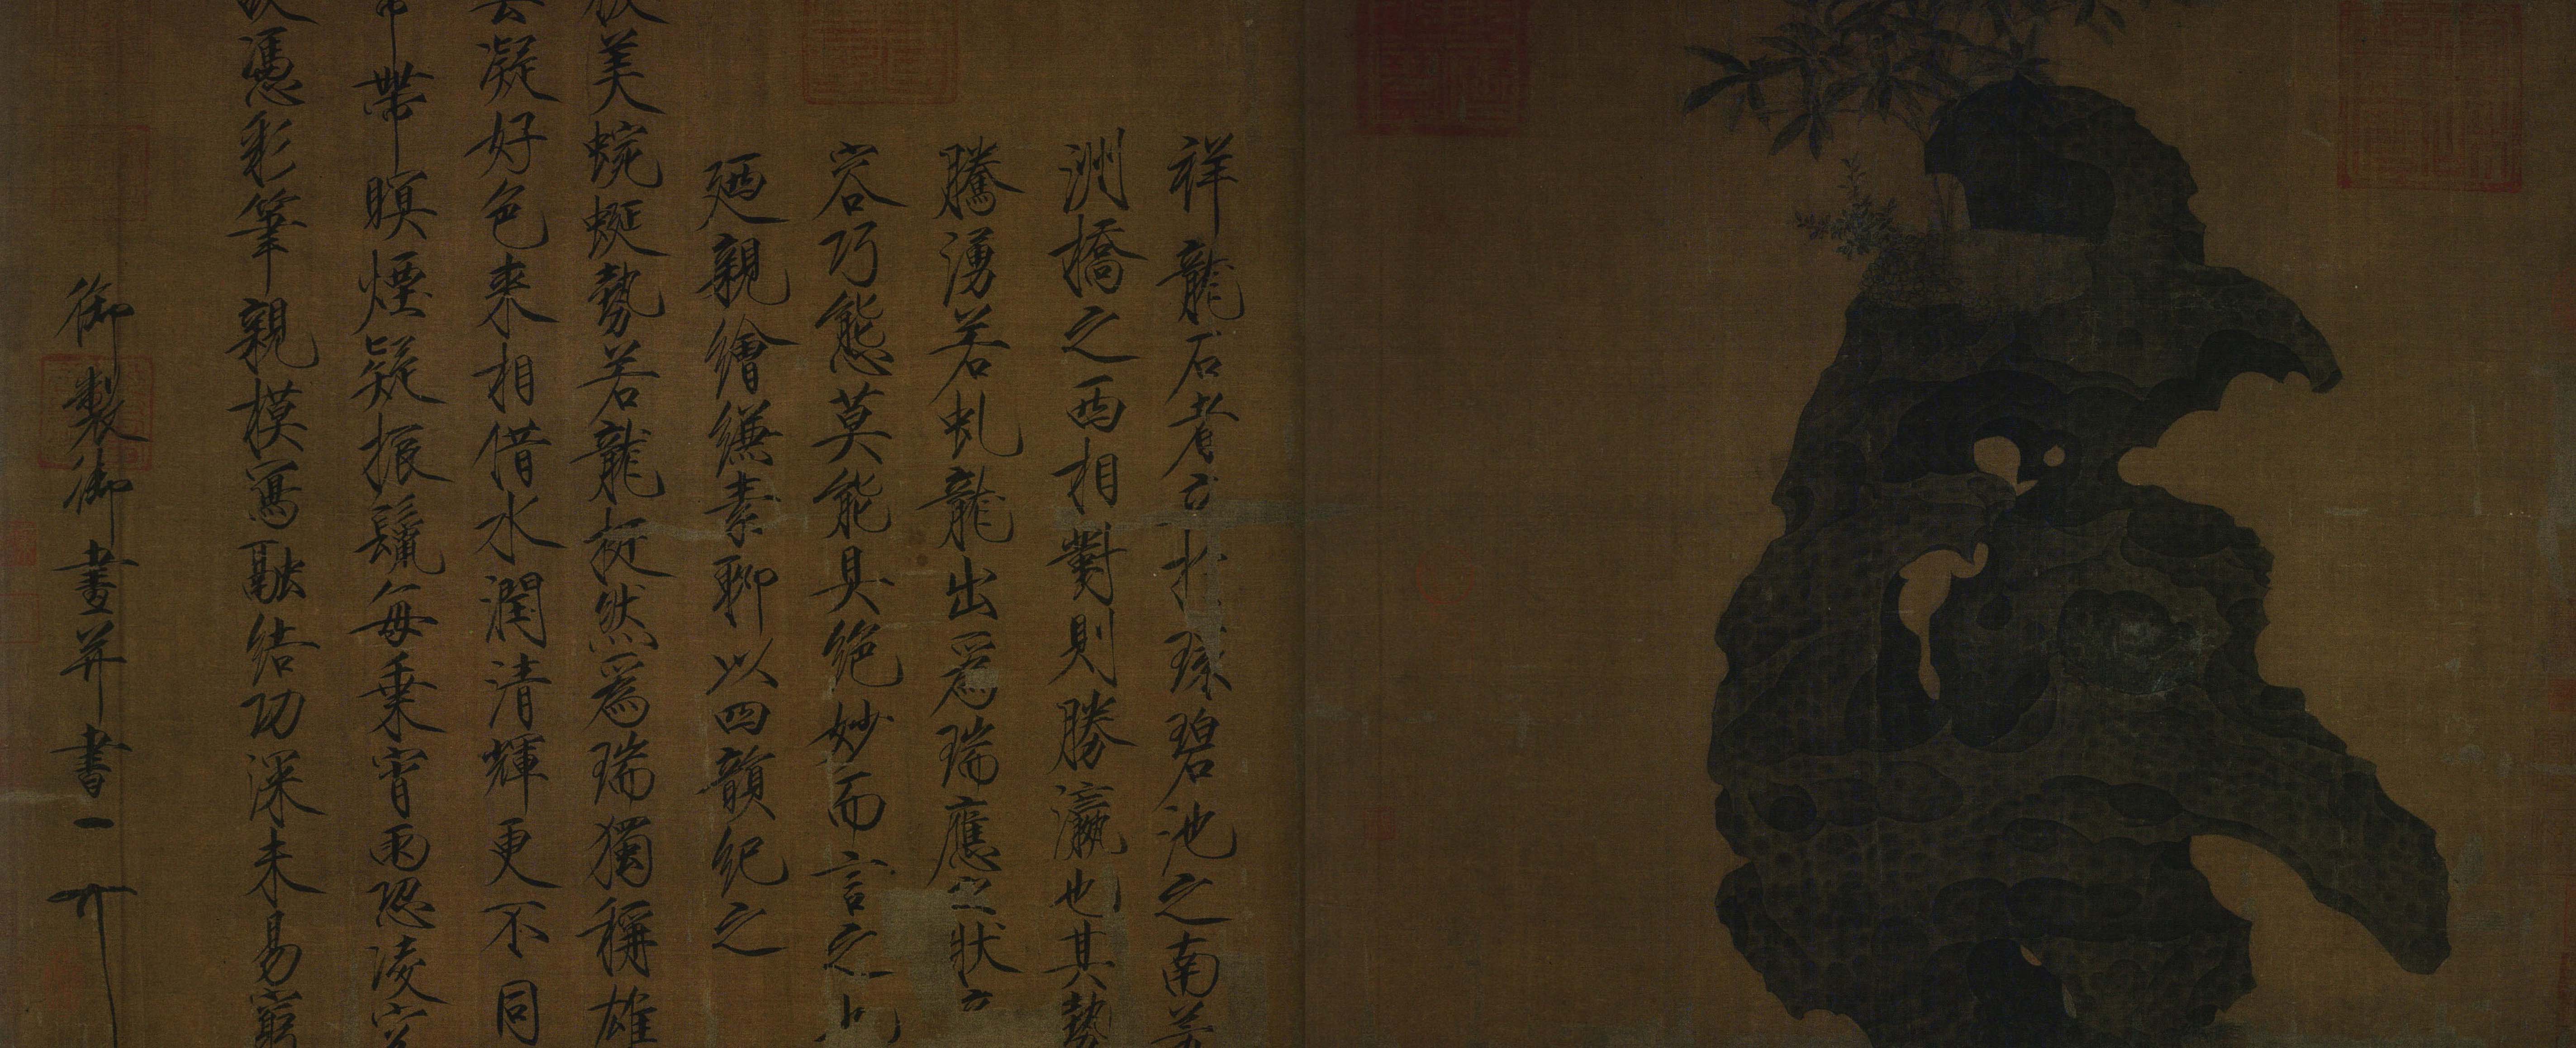 祥龍石者立於環碧池之南芳
洲橋之西相對則勝瀛也其勢
騰湧若虬龍出爲瑞應之狀
容巧態莫能具絕妙而言之也
廼親繪縑素聊以四韻紀之
彼美蜿蜒勢若龍挺然爲瑞獨稱雄
雲凝好色來相借水潤清輝更不同
常帶暝煙疑振鬣每乘宵雨恐凌空
故憑彩筆親模寫融結功深未易窮
御製御畫并書